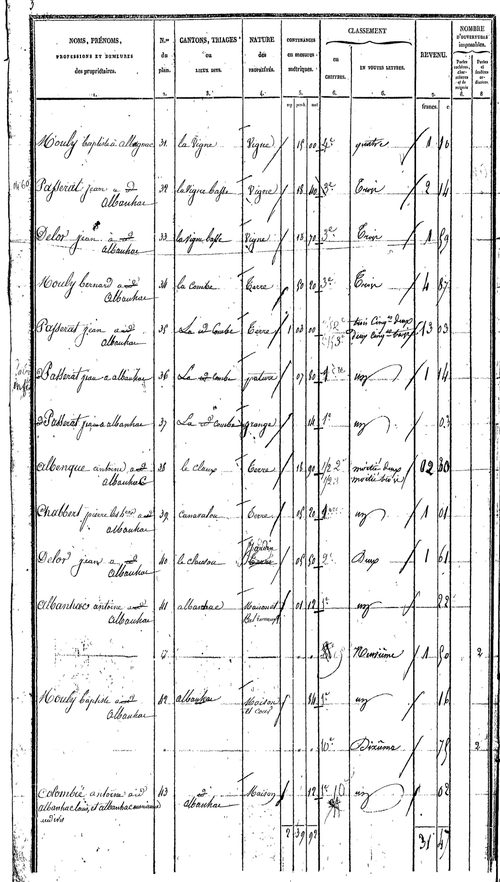 3
NOMS, PRÉNOMS,
PROFESSIONS ET DEMEURES
des propriétaires.
1.
N.os
du
plan.
2.
CANTONS, TRIAGES
ou
LIEUX DITS.
3.
NATURE
des
4.
CONTENANCES
en mesures
métriques.
5.
CLASSEMENT
en
CHIFFRES.
6.
EN TOUTES LETTRES.
6.
REVENU.
7.
francs. c
NOMBRE
D'OUVERTURES
imposables.
8
Mouly baptiste à 31. la Vigne Vigne 15 00 4e quatre 1 10
Passerat jean a id 32 la vigne basse Vigne 18 40 3e Trois 2 14
albanhac
Delor jean a id 33 la vigne basse Vigne 13 70 3e Trois 1 59
albanhac
Mouly bernard a id 34 la combe Terre 50 20 3e Trois 4 87
albanhac
Passerat jean a id 35 La id Combe Terre 1 03 00 trois cinq.mes deux 13 03
albanhac deux cinq.mes trois
Passerat jean a albanhac 36 La id combe pature 07 80 1ere un 1 14
Passerat jean a albanhac 37 La id Combe grange 14 1e un 03
albenque antoine a id 38 le claux Terre 18 90 1/2 2e moitié deux 02 80
albanhac 1/2 3 moitié trois
Chatbert pierre a id 39 canaralou Terre 05 20 1ere un 1 01
albanhac
Delor jean a id 40 le chaussou Jardin 05 50 2e Deux 1 61
albanhac
albanhac antoine a id 41 albanhac Maison et 01 12 1e un 22
albanhac
id Neuvième 1 50 2
Mouly baptiste a id 42 albanhac Maison 34 1e un 16
albanhac et cour
10e Dixième 75 2
Colombié antoine a id 43 id Maison 12 1e un 02
albanhac louis, et albanhac albanhac
indivis
2 39 92 31 47